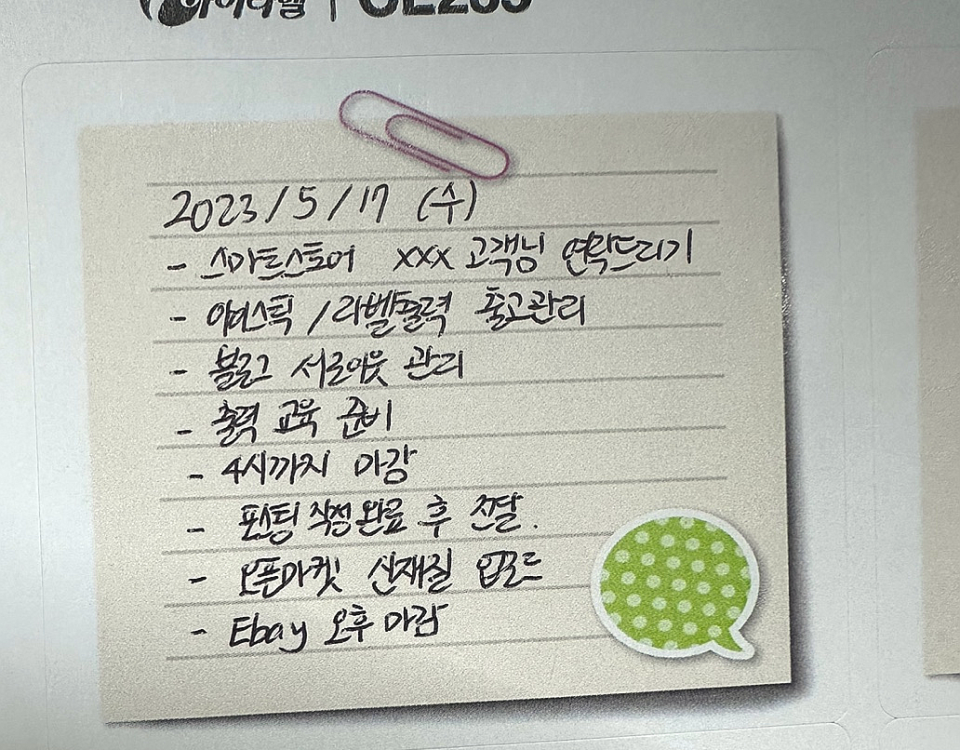 아이라벨 |
2023/5/17 (수)
- 스마트스토어 xxx 고객님 연락드리기
- 라벨출력 출고관리
- 블로그 서로이웃 관리
- 출력 교육 준비
- 4시까지 마감
- 포스팅 작성 완료 후 전달.
- 오픈마켓 신재질 업로드
- Ebay 오후 마감